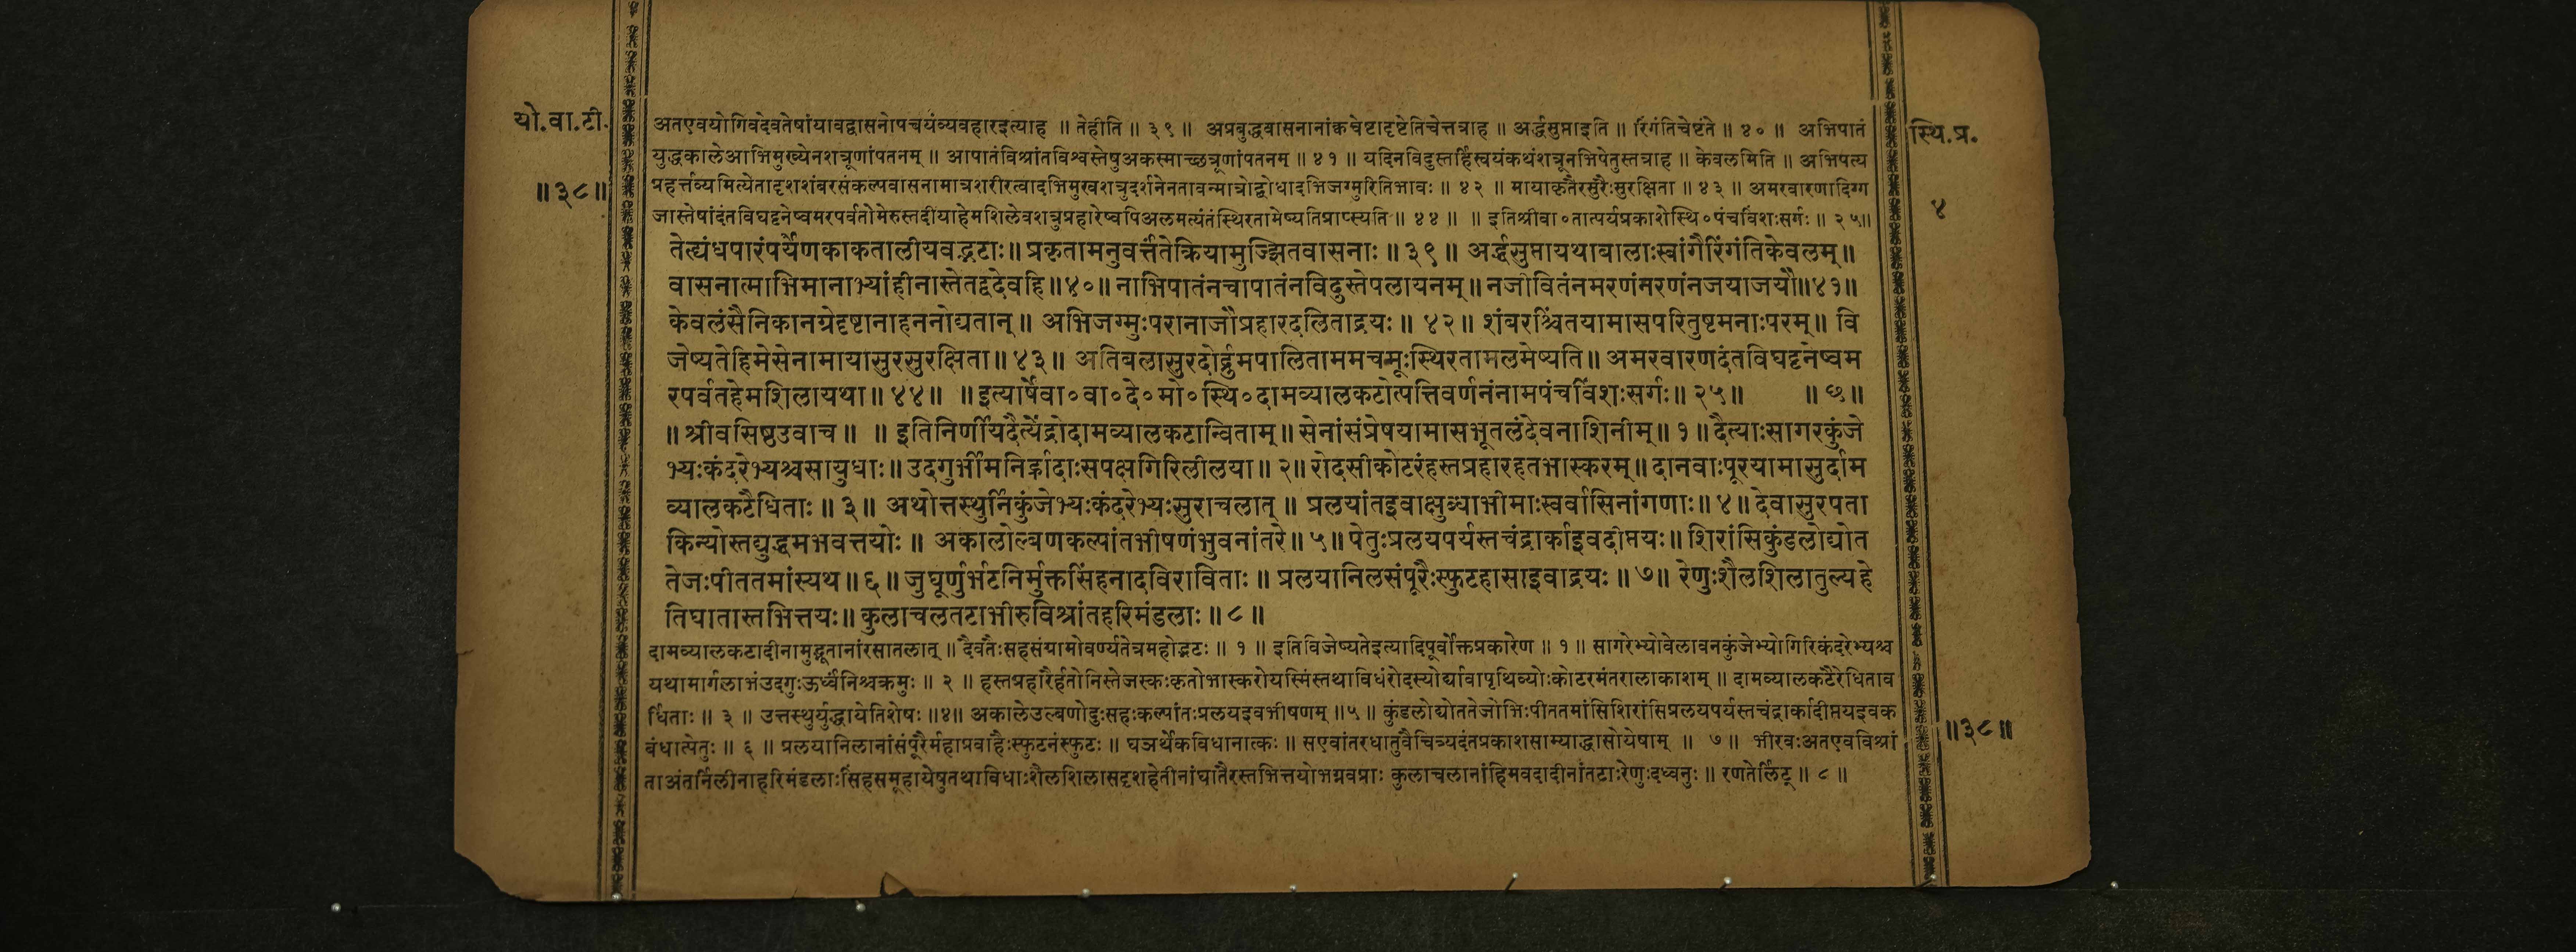 यो.वा.टी.
॥३८॥
स्थि.प्र.
४
अतएवयोगिवदेवतेषांयावद्वासनोपचयंव्यवहारइत्याह ॥ तेहीति ॥ ३९ ॥ अप्रबुद्धवासनानांक्वचेष्टादृष्टेतिचेत्तत्राह ॥ अर्द्धसुप्ताइति ॥ रिंगंतिचेष्टंते ॥ ४० ॥ अभिपातं
युद्धकालेआभिमुख्येनशत्रूणांपतनम् ॥ आपातंविश्रांतविश्वस्तेषुअकस्माच्छत्रूणांपतनम् ॥ ४१ ॥ यदिनविदुस्तर्हिस्वयंकथंशत्रूनभिपेतुस्तत्राह ॥ केवलमिति ॥ अभिपत्य
प्रहर्त्तव्यमित्येतादृशशंबरसंकल्पवासनामात्रशरीरत्वादभिमुखशत्रुदर्शनेनतावन्मात्रोद्बोधादभिजग्मुरितिभावः ॥ ४२ ॥ मायाकृतैरसुरैःसुरक्षिता ॥ ४३ ॥ अमरवारणादिग्ग
जास्तेषांदंतविघट्टनेष्वमरपर्वतोमेरुस्तदीयाहेमशिलेवशत्रुप्रहारेष्वपिअलमत्यंतंस्थिरतामेष्यतिप्राप्स्यति ॥ ४४ ॥ ॥ इतिश्रीवा०तात्पर्यप्रकाशेस्थि०पंचविंशःसर्गः ॥ २५॥
तेत्द्यंधपारंपर्येणकाकतालीयवद्भटाः॥ प्रकृतामनुवर्त्तंतेक्रियामुज्झितवासनाः ॥ ३९ ॥ अर्द्धसुप्तायथाबालाःस्वांगैरिंगंतिकेवलम् ॥
वासनात्माभिमानाभ्यांहीनास्तेतद्वदेवहि॥४०॥ नाभिपातंनचापातंनविदुस्तेपलायनम्॥ नजीवितंनमरणंनरणंनजयाजयौ॥४१॥
केवलंसैनिकानग्रेदृष्टानाहननोद्यतान्॥ अभिजग्मुःपरानाजौप्रहारदलिताद्रयः ॥ ४२॥ शंबरश्चिंतयामासपरितुष्टमनाःपरम्॥ वि
जेष्यतेहिमेसेनामायासुरसुरक्षिता॥ ४३॥ अतिबलासुरदोर्द्रुमपालिताममचमूःस्थिरतामलमेष्यति॥ अमरवारणदंतविघट्टनेष्वम
रपर्वतहेमशिलायथा॥ ४४॥ ॥ इत्यार्षेवा०वा०दे०मो०स्थि०दामव्यालकटोत्पत्तिवर्णनंनामपंचविंशःसर्गः॥ २५॥ ॥ छ॥
॥ श्रीवसिष्ठउवाच॥ ॥ इतिनिर्णीयदैत्येंद्रोदामव्यालकटान्विताम्॥ सेनांसंप्रेषयामासभूतलंदेवनाशिनीम्॥ १॥ दैत्याःसागरकुंजे
भ्यःकंदरेभ्यश्चसायुधाः॥ उदगुर्भीमनिर्ह्रादाःसपक्षगिरिलीलया॥ २॥ रोदसीकोटरंहस्तप्रहारहतभास्करम्॥ दानवाःपूरयामासुर्दाम
व्यालकटैधिताः॥ ३॥ अथोत्तस्थुर्निकुंजेभ्यःकंदरेभ्यःसुराचलात् ॥ प्रलयांतइवाक्षुब्धाभीमाःस्वर्वासिनांगणाः॥ ४॥ देवासुरपता
किन्योस्तद्युद्धमभवत्तयोः ॥ अकालोल्बणकल्पांतभीषणंभुवनांतरे॥ ५॥ पेतुःप्रलयपर्यस्तचंद्रार्काइवदीप्तयः॥ शिरांसिकुंडलोद्योत
तेजःपीततमांस्यथ॥ ६॥ जुघूर्णुर्भटनिर्मुक्तसिंहनादविराविताः॥ प्रलयानिलसंपूरैःस्फुटहासाइवाद्रयः ॥ ७॥ रेणुःशैलशिलातुल्यहे
तिघातास्तभित्तयः॥ कुलाचलतटाभीरुविश्रांतहरिमंडलाः ॥ ८॥
दामव्यालकटादीनामुद्भूतानांरसातलात् ॥ दैवतैःसहसंग्रामोवर्ण्यतेत्रमहोद्भटः ॥ १ ॥ इतिविजेष्यतेइत्यादिपूर्वोक्तप्रकारेण ॥ १ ॥ सागरेभ्योवेलावनकुंजेभ्योगिरिकंदरेभ्यश्च
यथामार्गलाभंउदगुःऊर्ध्वंनिश्चक्रमुः ॥ २ ॥ हस्तप्रहारैर्हतोनिस्तेजस्कःकृतोभास्करोयस्मिंस्तथाविधंरोदस्योर्द्यावापृथिव्योःकोटरमंतरालाकाशम् ॥ दामव्यालकटैरेधिताव
र्धिताः ॥ ३ ॥ उत्तस्थुर्युद्धायेतिशेषः ॥४॥ अकालेउल्बणोदुःसहःकल्पांतःप्रलयइवभीषणम् ॥५ ॥ कुंडलोद्योततेजोभिःपीततमांसिशिरांसिप्रलयपर्यस्तचंद्रार्कादीप्तयइवक
बंधात्पेतुः ॥ ६ ॥ प्रलयानिलानांसंपूरैर्महाप्रवाहैःस्फुटनंस्फुटः ॥ घञर्थेकविधानात्कः ॥ सएवांतरधातुवैचित्र्यदंतप्रकाशसाम्याद्धासोयेषाम् ॥ ७ ॥ भीरवःअतएवविश्रां
ताअंतर्निलीनाहरिमंडलाःसिंहसमूहायेषुतथाविधाःशैलशिलासदृशहेतीनांघातैरस्तभित्तयोभग्नवप्राः कुलाचलानांहिमवदादीनांतटाःरेणुःदध्वनुः ॥ रणतेर्लिट् ॥ ८ ॥
॥३८॥